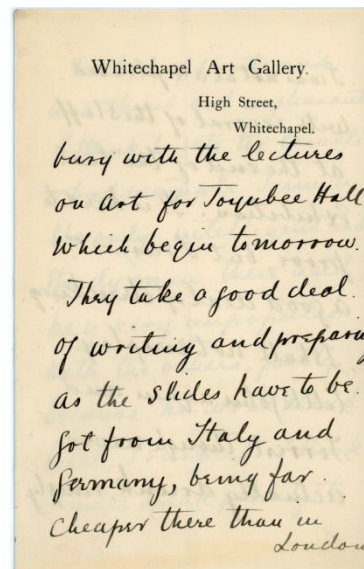 Whitechapel Art Gallery.
High Street,
Whitechapel.
busy with the lectures
on Art for Toynbee Hall
which begin tomorrow.
They take a good deal
of writing and preparing
as the slides have to be
got from Italy and
Germany, being far
cheaper there than in
London